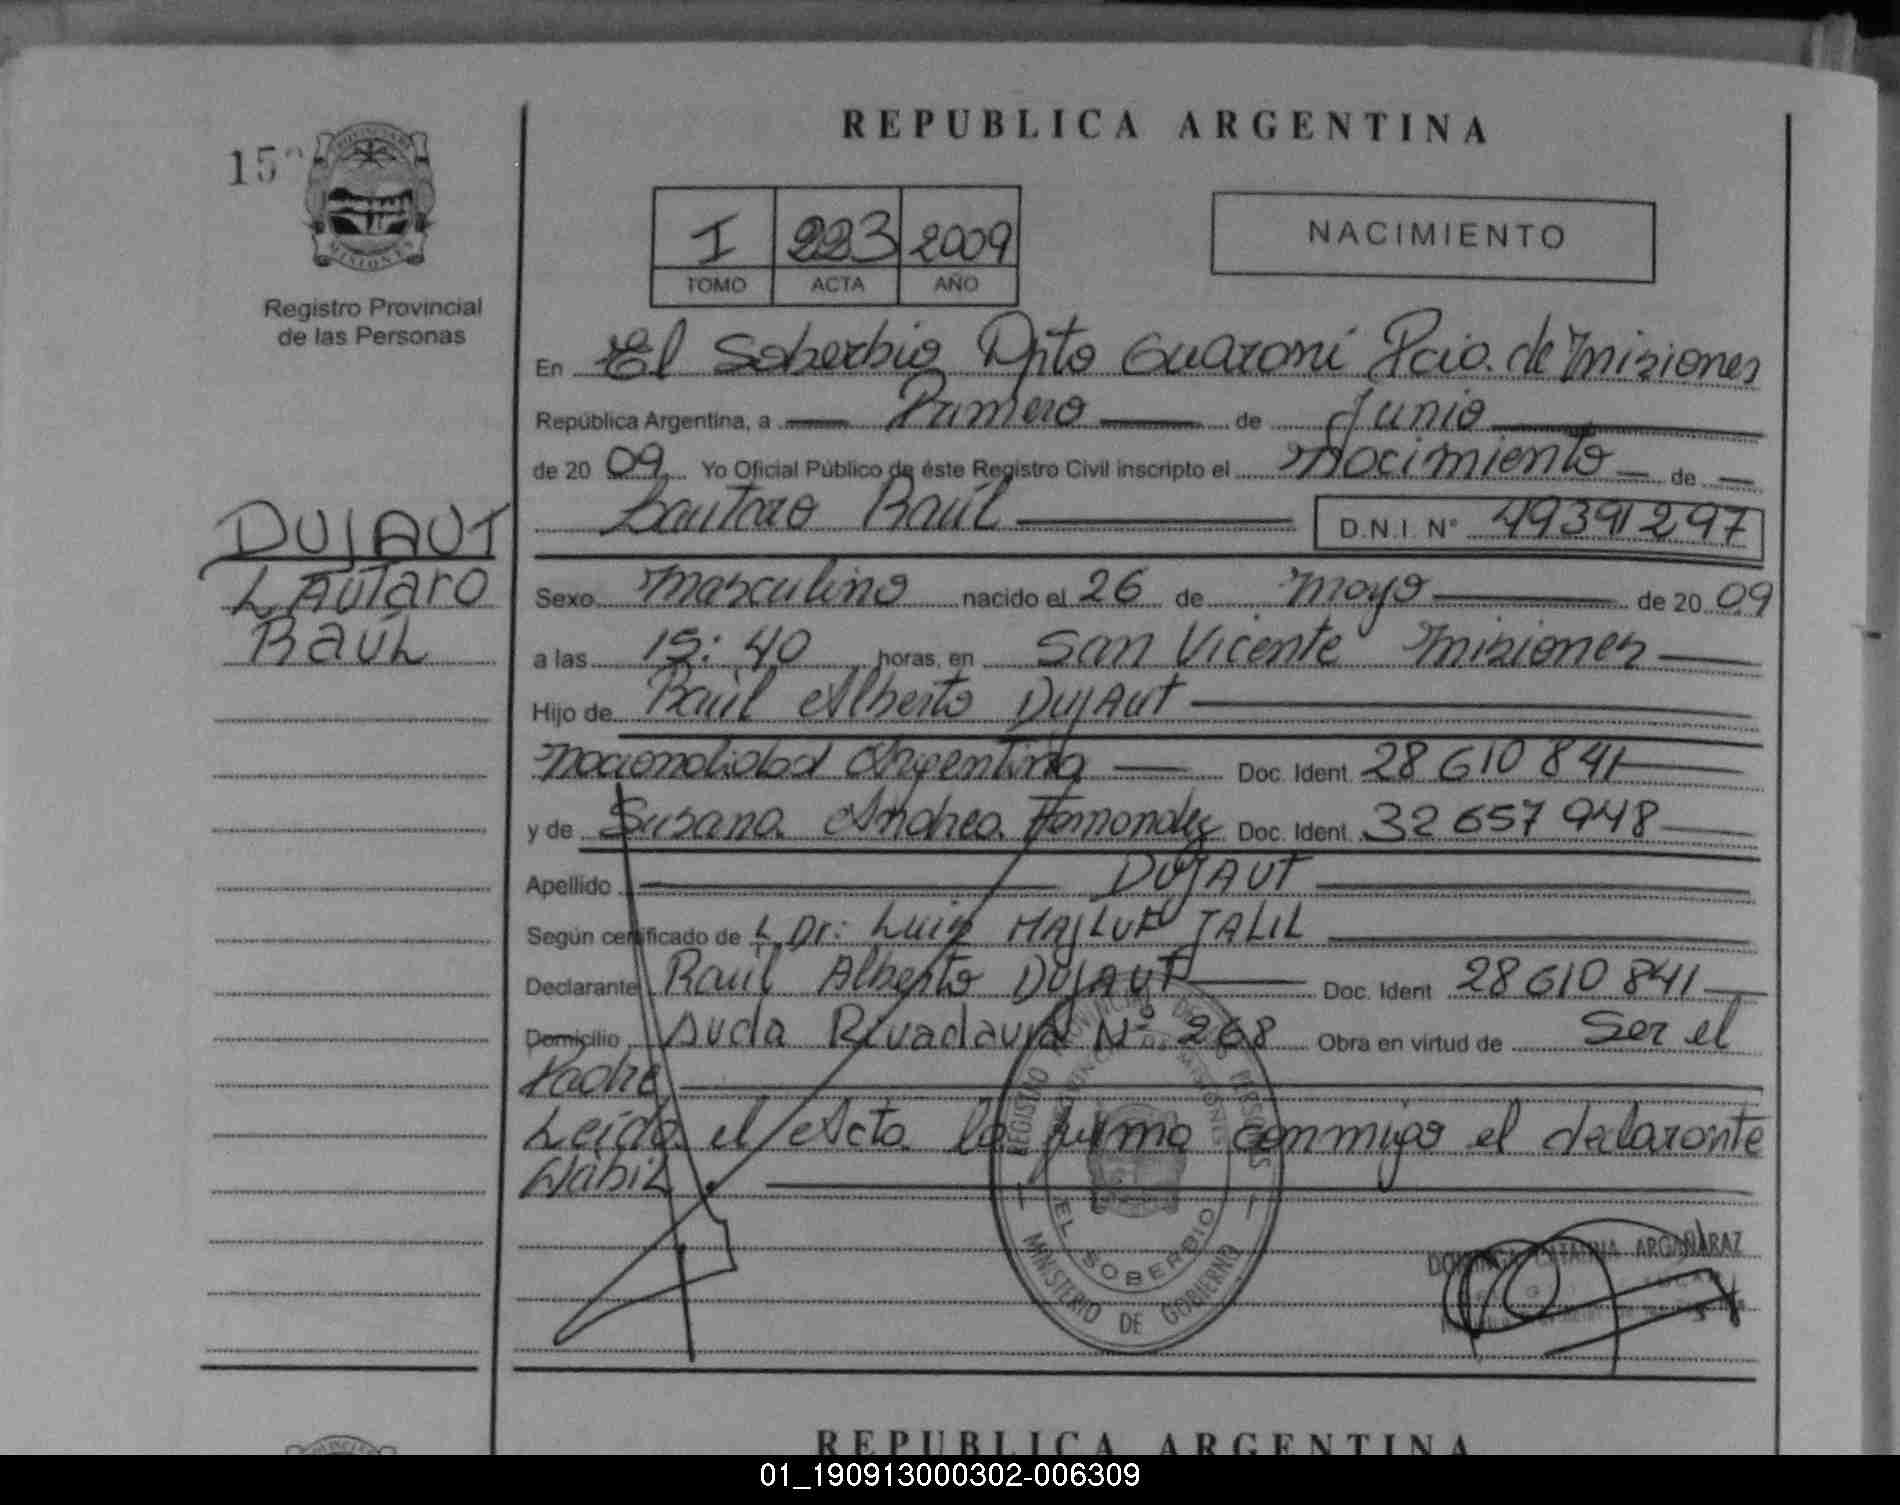 REPUBLICA ARGENTINA
15
PROVINCIA DE
MISIONES
Registro Provincial
de las Personas
I 223 2009
TOMO ACTA AÑO
NACIMIENTO
En El Soberbio Dpto Guaraní Pcia. de Misiones
República Argentina, a Primero de Junio
de 2009 Yo Oficial Público de éste Registro Civil inscripto el Nacimiento de
Lautaro Raúl D.N.I. N° 49391297
DUJAUT
LAUTARO
RAÚL
Sexo Masculino nacido el 26 de Mayo de 2009
a las 15:40 horas, en San Vicente Misiones
Hijo de Raúl Alberto DUJAUT
Nacionalidad Argentina Doc. Ident. 28 610 841
y de Susana Andrea Hernandez Doc. Ident. 32 657 948
Apellido DUJAUT
Según certificado de Dr: Luis MAJLUF JALIL
Declarante Raúl Alberto DUJAUT Doc. Ident 28 610 841
Domicilio Avda Rivadavia Nº 268 Obra en virtud de Ser el
Padre
Leída el Acta la firma conmigo el declarante
REGISTRO PROVINCIAL DE LAS PERSONAS
PROVINCIA DE MISIONES
EL SOBERBIO
MINISTERIO DE GOBIERNO
DOMINGA CATALINA ARGAÑARAZ
REPUBLICA ARGENTINA
01_190913000302-006309